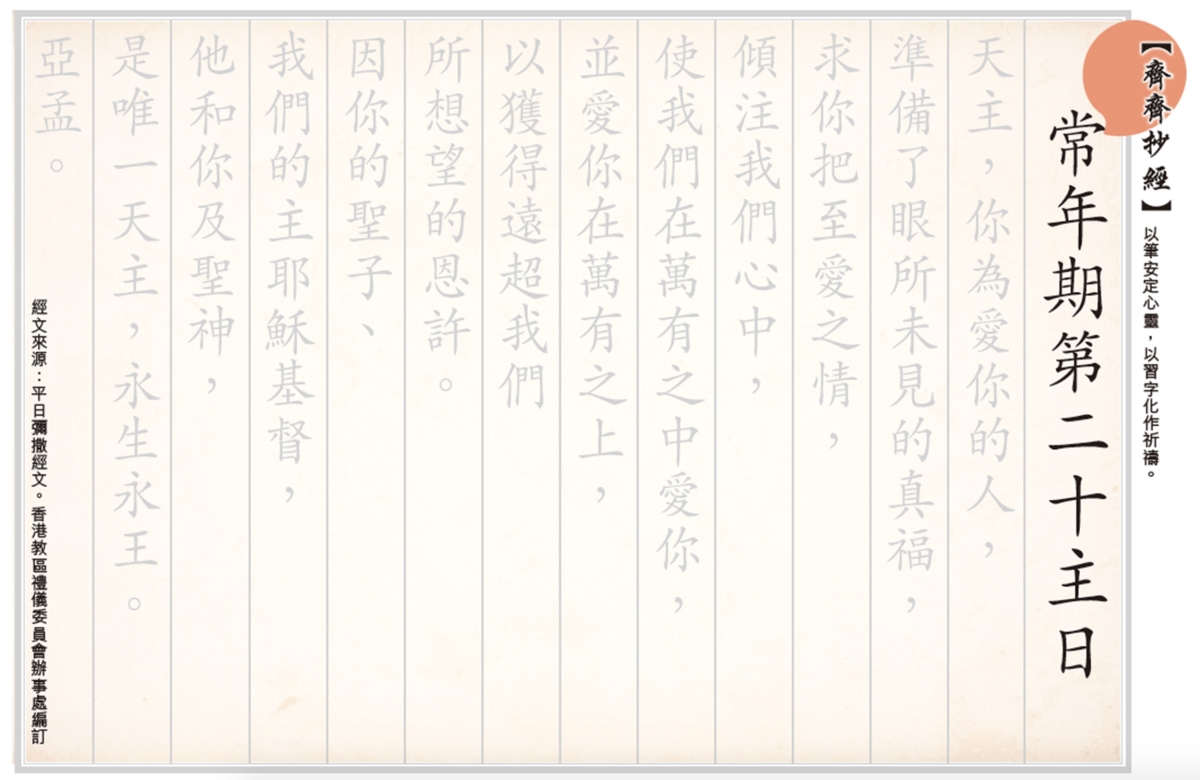 【齊齊抄經】 以筆安定心靈，以習字化作祈禱。
常年期第二十主日
天主，你為愛你的人，
準備了眼所未見的真福，
求你把至愛之情，
傾注我們心中，
使我們在萬有之中愛你，
並愛你在萬有之上，
以獲得遠超我們
所想望的恩許。
因你的聖子、
我們的主耶穌基督，
他和你及聖神，
是唯一天主，永生永王。
亞孟。
經文來源：平日彌撒經文。香港教區禮儀委員會辦事處編訂